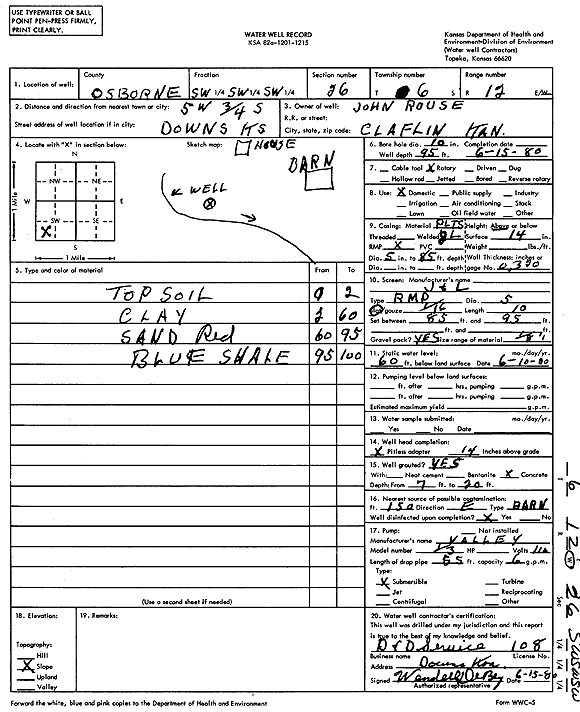 USE TYPEWRITER OR BALL
POINT PEN-PRESS FIRMLY,
PRINT CLEARLY.
WATER WELL RECORD
KSA 82a-1201-1215
Kansas Department of Health and
Environment-Division of Environment
(Water well Contractors)
Topeka, Kansas 66620
1. Location of well:
County
OSBORNE
Fraction
SW 1/4 SW 1/4 SW 1/4
Section number
26
Township number
T 6 S
Range number
R 12 E/W
2. Distance and direction from nearest town or city: 5 W 3/4 S
Street address of well location if in city: DOWNS KS
3. Owner of well: JOHN ROUSE
R.R. or street:
City, state, zip code: CLAFLIN KAN.
4. Locate with "X" in section below:
N
NW NE
W E
SW SE
X
S
1 Mile
1 Mile
Sketch map:
HOUSE
BARN
WELL
6. Bore hole dia. 10 in. Completion date
Well depth 95 ft. 6-15-80
7. Cable tool X Rotary Driven Dug
Hollow rod Jetted Bored Reverse rotary
8. Use: X Domestic Public supply Industry
Irrigation Air conditioning Stock
Lawn Oil field water Other
9. Casing: Material PLTS Height: Above or below
Threaded Welded GL Surface 14 in.
RMP X PVC Weight lbs./ft.
Dia. 5 in. to 85 ft. depth Wall Thickness: inches or
Dia. in. to ft. depth gage No.
5. Type and color of material From To
TOP SOIL 0 2
CLAY 2 60
SAND Red 60 95
BLUE SHALE 95 100
(Use a second sheet if needed)
10. Screen: Manufacturer's name
J & L
Type RMP Dia. 5
gauze 1/16 Length 10
Set between 85 ft. and 95 ft.
ft. and ft.
Gravel pack? YES Size range of material
11. Static water level: mo./day/yr.
60 ft. below land surface Date 6-10-80
12. Pumping level below land surfaces:
ft. after hrs. pumping g.p.m.
ft. after hrs. pumping g.p.m.
Estimated maximum yield g.p.m.
13. Water sample submitted: mo./day/yr.
Yes No Date
14. Well head completion:
X Pitless adapter 14 Inches above grade
15. Well grouted? YES
With: Neat cement Bentonite X Concrete
Depth: From 7 ft. to 20 ft.
16. Nearest source of possible contamination:
ft. 150 Direction E Type BARN
Well disinfected upon completion? X Yes No
17. Pump: Not installed
Manufacturer's name VALLEY
Model number 1/3 HP Volts 110
Length of drop pipe 85 ft. capacity 6 g.p.m.
Type:
X Submersible Turbine
Jet Reciprocating
Centrifugal Other
18. Elevation:
Topography:
Hill
X Slope
Upland
Valley
19. Remarks:
20. Water well contractor's certification:
This well was drilled under my jurisdiction and this report
is true to the best of my knowledge and belief.
D&D Service 108
Business name License No.
Address Downs Kan
Signed Wendell DeBey Date 6-15-80
Authorized representative
Forward the white, blue and pink copies to the Department of Health and Environment
Form WWC-5
Sec
1/4 1/4 1/4